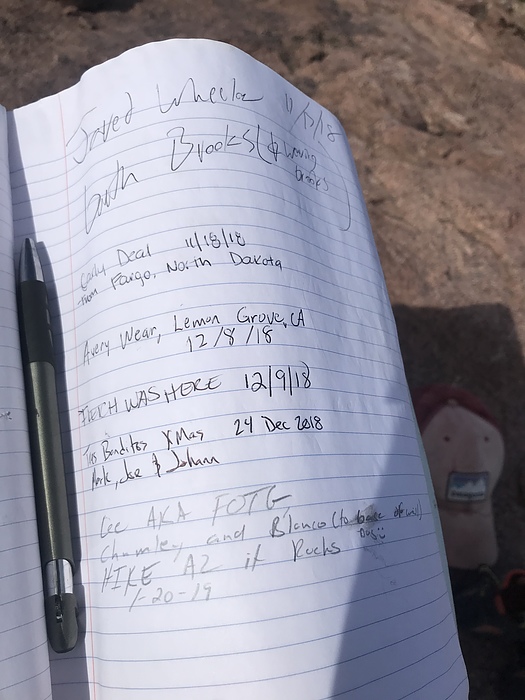 Jared Wheeler 11/17/18
both Brooks (&
Carly Deal 11/18/18
from Fargo, North Dakota
Avery Wear, Lemon Grove, CA
12/8/18
FLETCH WAS HERE 12/9/18
Tres Banditos XMas 24 Dec 2018
Mark, Joe & Johann
Lee AKA FOTG,
Chumley, and Blanco (to
HIKE AZ it Rocks
1-20-19